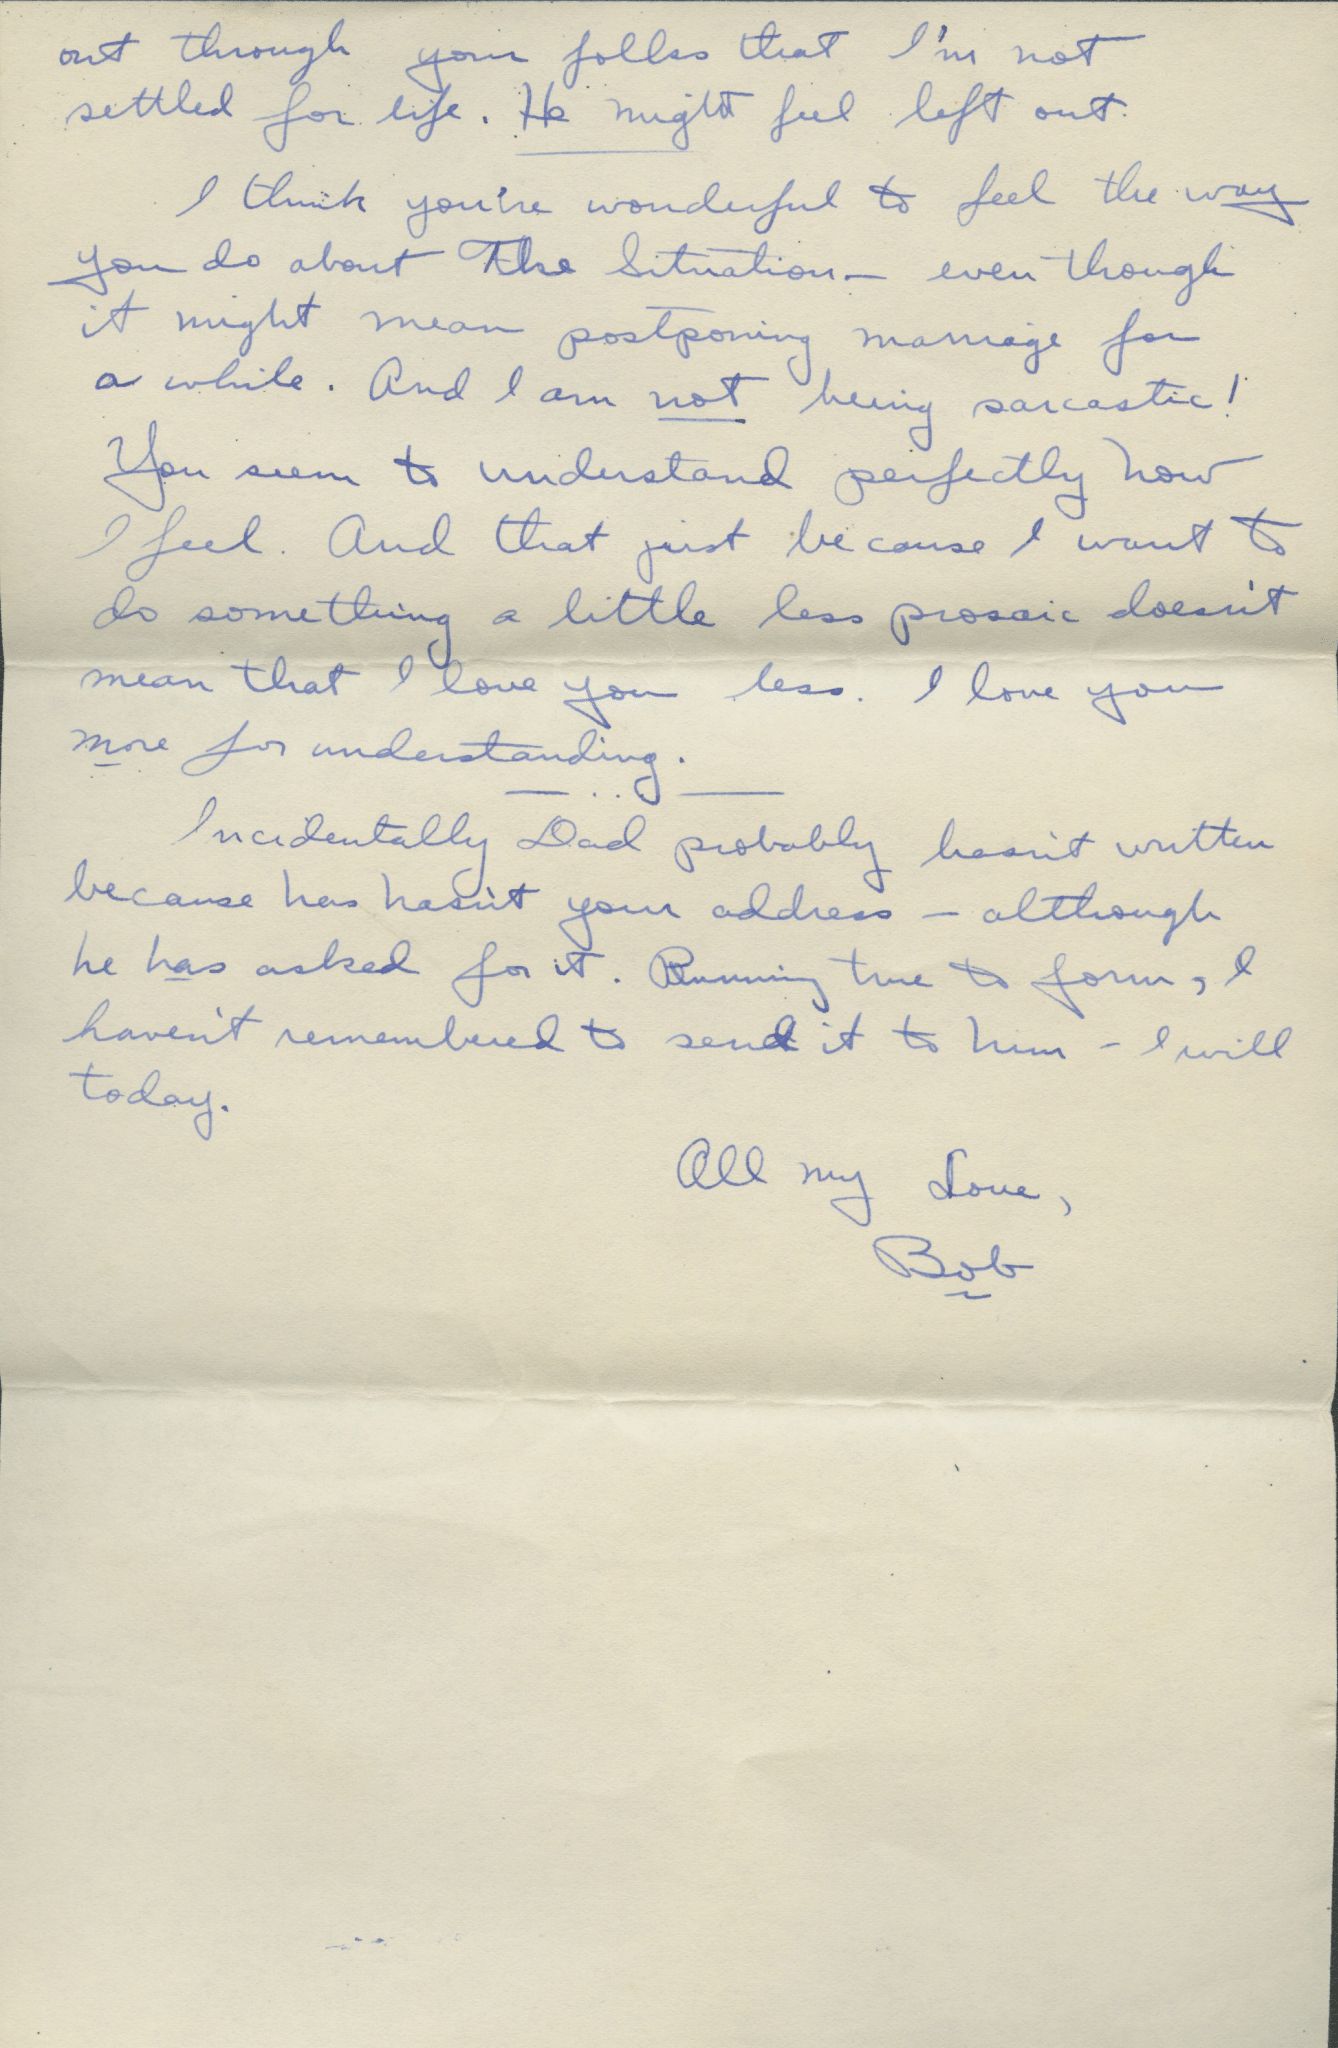 out through your folks that I'm not
settled for life. He might feel left out.
I think you're wonderful to feel the way
you do about The Situation — even though
it might mean postponing marriage for
a while. And I am not being sarcastic!
You seem to understand perfectly how
I feel. And that just because I want to
do something a little less prosaic doesn't
mean that I love you less. I love you
more for understanding.
Incidentally Dad probably hasn't written
because has hasn't your address — although
he has asked for it. Running true to form, I
haven't remembered to send it to him – I will
today.
All my Love,
Bob